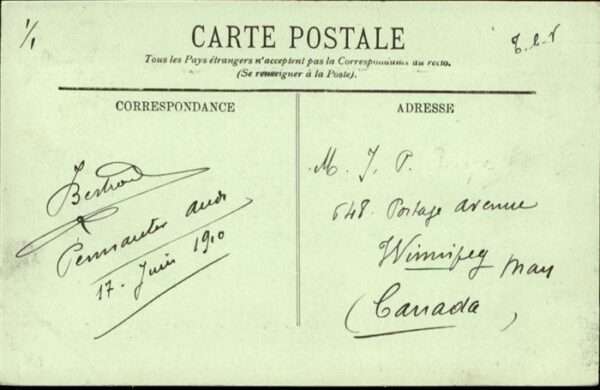 1/1
T.C.V
CARTE POSTALE
Tous les Pays étrangers n'acceptent pas la Correspondance au recto.
(Se renseigner à la Poste).
CORRESPONDANCE
ADRESSE
Bertrand
Pennautier Aude
17. Juin 1910
M. J. P.
648. Portage Avenue
Winnipeg Man
(Canada)